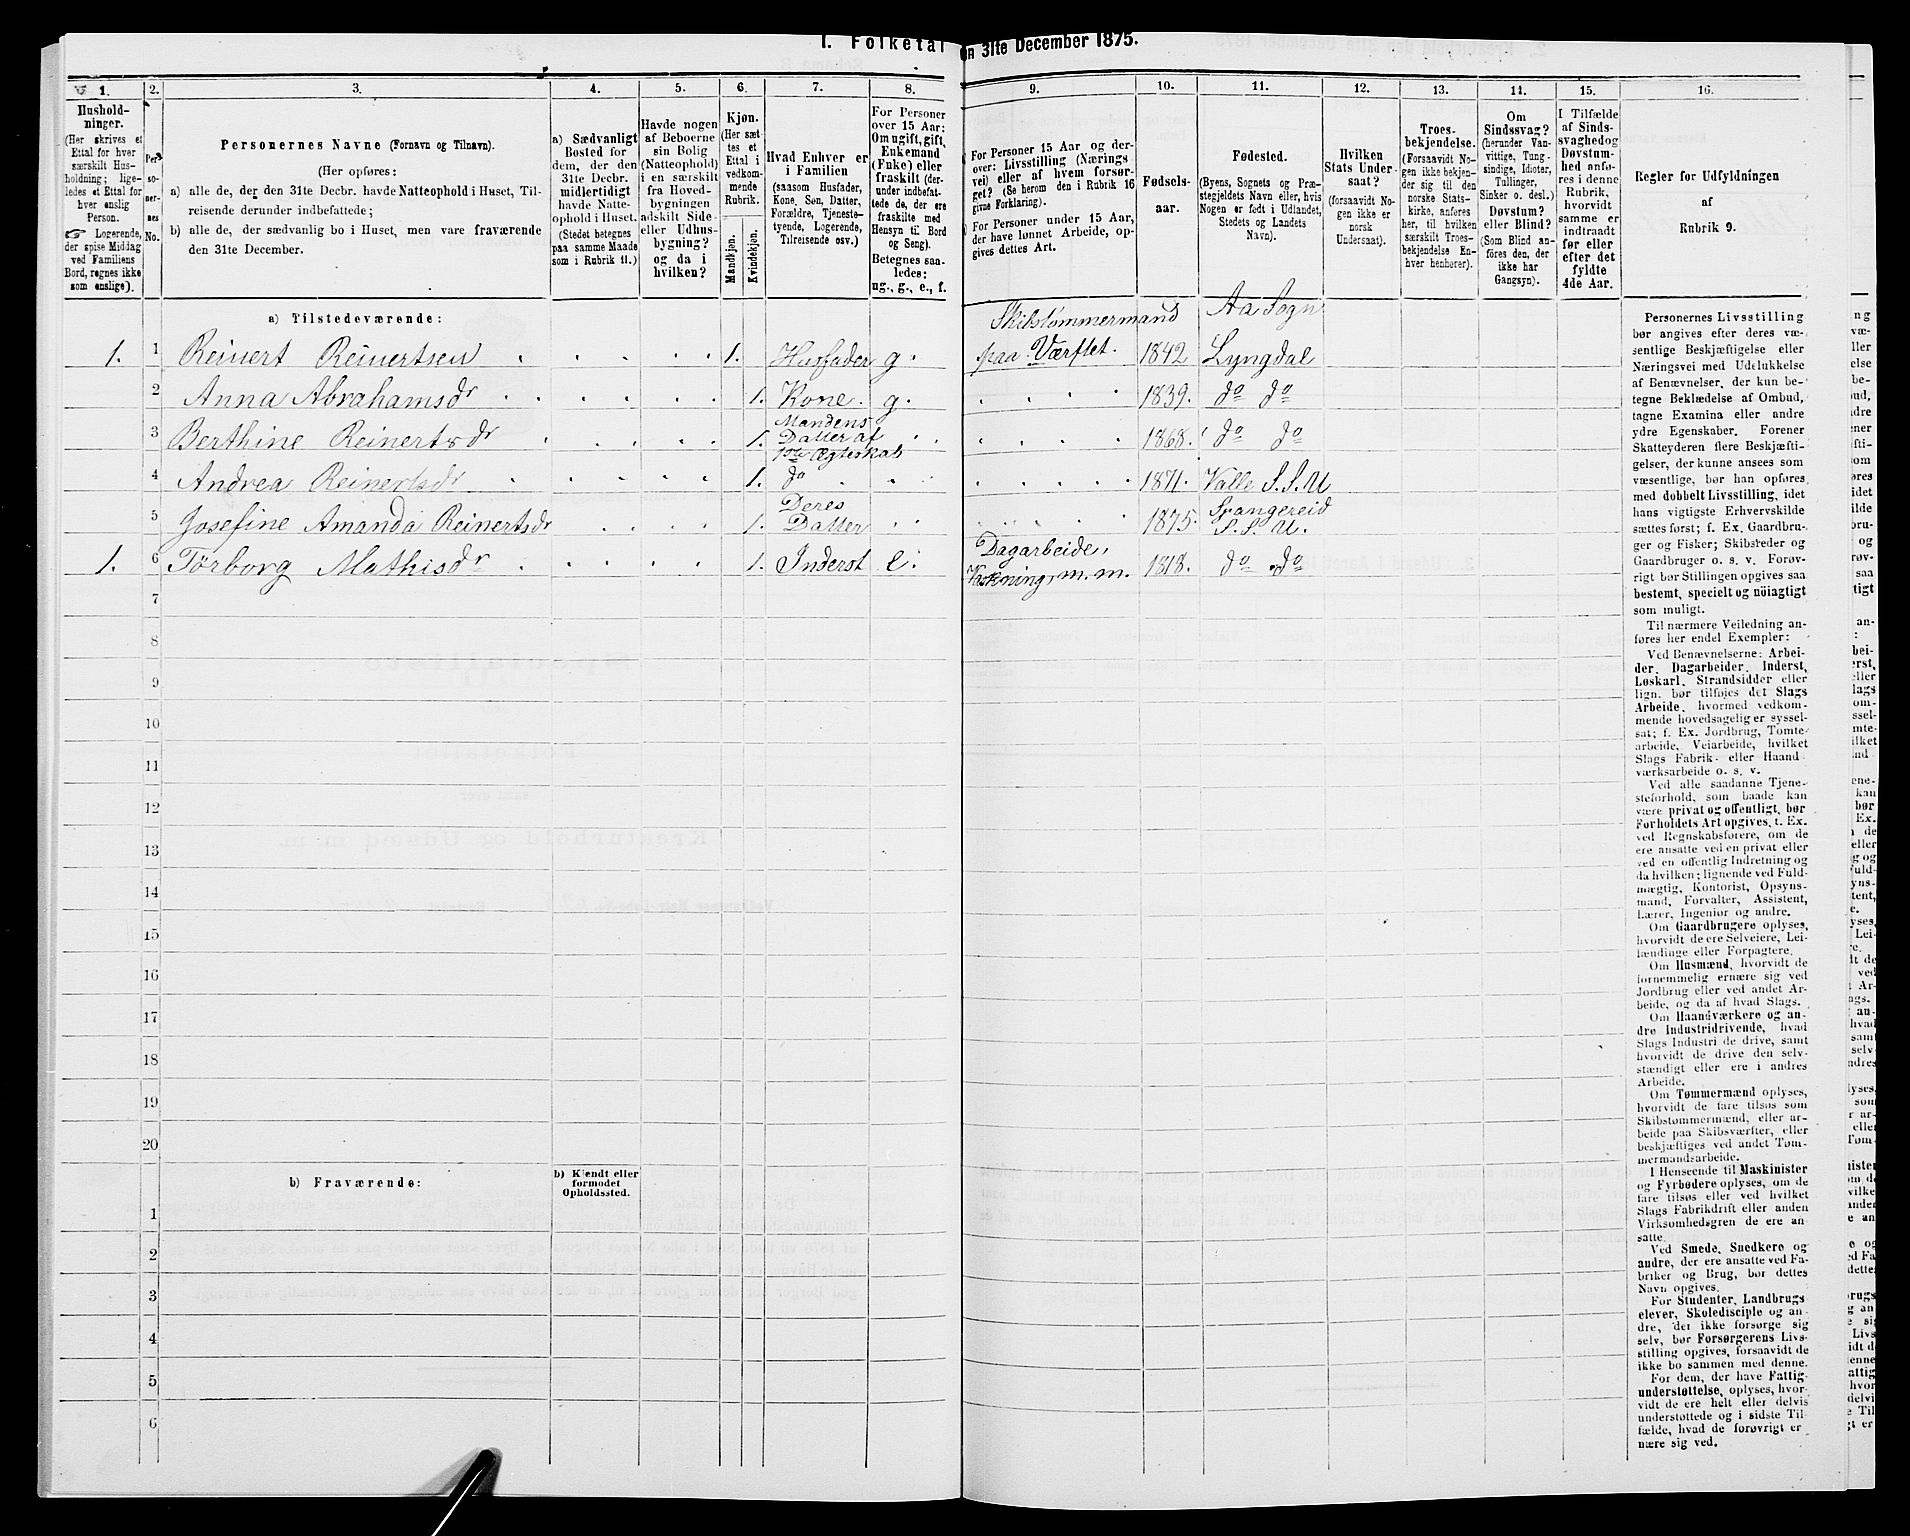 1. Folketal
en 31te December 1875.
1. 2. 3. 4. 5. 6. 7. 8. 9. 10. 11. 12. 13. 14. 15. 16.
Hushold-
ninger.
(Her skrives et
Ettal for hver
særskilt Hus-
holdning; lige-
ledes et Ettal for
hver enslig
Person.
☞ Logerende,
der spise Middag
ved Familiens
Bord, regnes ikke
som enslige).
Per-
so-
ner-
nes
No.
Personernes Navne (Fornavn og Tilnavn).
(Her opføres:
a) alle de, der den 31te Decbr. havde Natteophold i Huset, Til-
reisende derunder indbefattede;
b) alle de, der sædvanlig bo i Huset, men vare fraværende
den 31te December.
a) Sædvanligt
Bosted for
dem, der den
31te Decbr.
midlertidigt
havde Natte-
ophold i Huset.
(Stedet betegnes
paa samme Maade
som i Rubrik 11.)
Havde nogen
af Beboerne
sin Bolig
(Natteophold)
i en særskilt
fra Hoved-
bygningen
adskilt Side-
eller Udhus-
bygning?
og da i
hvilken?
Kjøn.
(Her sæt-
tes et
Ettal i
vedkom-
mende
Rubrik.
Mandkjøn.
Kvindekjøn.
Hvad Enhver er
i Familien
(saasom Husfader,
Kone, Søn, Datter,
Forældre, Tjeneste-
tyende, Logerende,
Tilreisende osv.)
For Personer
over 15 Aar:
Om ugift, gift,
Enkemand
(Enke) eller
fraskilt (der-
under indbefat-
tede de, der ere
fraskilte med
Hensyn til Bord
og Seng).
Betegnes saa-
ledes:
ug., g., e., f.
For Personer 15 Aar og der-
over: Livsstilling (Nærings
vei) eller af hvem forsør-
get? (Se herom den i Rubrik 16
givne Forklaring).
For Personer under 15 Aar,
der have lønnet Arbeide, op-
gives dettes Art.
Fødsels-
aar.
Fødested.
(Byens, Sognets og Præ-
stegjeldets Navn eller, hvis
Nogen er født i Udlandet,
Stedets og Landets
Navn).
Hvilken
Stats Under-
saat?
(forsaavidt No-
gen ikke er
norsk
Undersaat).
Troes-
bekjendelse.
(Forsaavidt No-
gen ikke bekjen-
der sig til den
norske Stats-
kirke, anføres
her, til hvilken
særskilt Troes-
bekjendelse En-
hver henhører).
Om
Sindssvag?
(herunder Van-
vittige, Tung-
sindige, Idioter,
Tullinger,
Sinker o. desl.)
Døvstum?
eller Blind?
(Som Blind an-
føres den, der
ikke har
Gangsyn).
I Tilfælde
af Sinds-
svaghed og
Døvstum-
hed anfø-
res i denne
Rubrik,
hvorvidt
samme er
indtraadt
før eller
efter det
fyldte
4de Aar.
Regler for Udfyldningen
af
Rubrik 9.
a) Tilstedeværende:
Skibstømmermand Aa Sogn
1. 1 Reinert Reinertsen 1. Husfader g. paa Værftet. 1842 Lyngdal
2 Anna Abrahamsdr 1. Kone. g. 1839. do do
Mandens
3 Berthine Reinertsdr 1. Datter af 1868. do do
1ste Ægteskab
4 Andrea Reinertsdr 1. do 1871. Valle S. S. U
Deres Spangereid
5 Josefine Amanda Reinertsdr 1. Datter 1875. S. S. U.
Dagarbeide,
1. 6 Tørborg Mathisdr 1. Inderst e. Vaskning, m.m. 1818. do do
7
8
9
10
11
12
13
14
15
16
17
18
19
20
b) Fraværende:
b) Kjendt eller
formodet
Opholdssted.
1
2
3
4
5
6
Personernes Livsstilling
bør angives efter deres væ-
sentlige Beskjæftigelse eller
Næringsvei med Udelukkelse
af Benævnelser, der kun be-
tegne Beklædelse af Ombud,
tagne Examina eller andre
ydre Egenskaber. Forener
Skatteyderen flere Beskjæfti-
gelser, der kunne ansees som
væsentlige, bør han opføres
med dobbelt Livsstilling, idet
hans vigtigste Erhvervskilde
sættes først; f. Ex. Gaardbru-
ger og Fisker; Skibsreder og
Gaardbruger o. s. v. Forøv-
rigt bør Stillingen opgives saa
bestemt, specielt og nöiagtigt
som muligt.
Til nærmere Veiledning an-
føres her endel Exempler:
Ved Benævnelserne: Arbei-
der, Dagarbeider, Inderst,
Løskarl, Strandsidder eller
lign. bør tilføies det Slags
Arbeide, hvormed vedkom-
mende hovedsagelig er syssel-
sat; f. Ex. Jordbrug, Tomte-
arbeide, Veiarbeide, hvilket
Slags Fabrik- eller Haand
værksarbeide o. s. v.
Ved alle saadanne Tjene-
steforhold, som baade kan
være privat og offentligt, bør
Forholdets Art opgives, t. Ex.
ved Regnskabsførere, om de
ere ansatte ved en privat eller
ved en offentlig Indretning og
da hvilken; lignende ved Fuld-
mægtig, Kontorist, Opsyns-
mand, Forvalter, Assistent,
Lærer, Ingeniør og andre.
Om Gaardbrugere oplyses,
hvorvidt de ere Selveiere, Lei-
lændinge eller Forpagtere.
Om Husmænd, hvorvidt de
fornemmelig ernære sig ved
Jordbrug eller ved andet Ar-
beide, og da af hvad Slags.
Om Haandværkere og an-
dre Industridrivende, hvad
Slags Industri de drive, samt
hvorvidt de drive den selv-
stændigt eller ere i andres
Arbeide.
Om Tømmermænd oplyses,
hvorvidt de fare tilsøs som
Skibstømmermænd, eller ar-
beide paa Skibsværfter, eller
beskjæftiges ved andet Tøm-
mermandsarbeide.
I Henseende til Maskinister
og Fyrbødere oplyses, om de
fare tilsøs eller ved hvilket
Slags Fabrikdrift eller anden
Virksomhedsgren de ere an-
satte.
Ved Smede, Snedkere og
andre, der ere ansatte ved Fa-
briker og Brug, bør dettes
Navn opgives.
For Studenter, Landbrugs
elever, Skoledisciple og an-
dre, der ikke forsørge sig
selv, bør Forsørgerens Livs-
stilling opgives, forsaavidt de
ikke bo sammen med denne.
For dem, der have Fattig-
understøttelse, oplyses, hvor-
vidt de ere helt eller delvis
understøttede og i sidste Til-
fælde, hvad de forøvrigt er-
nære sig ved.